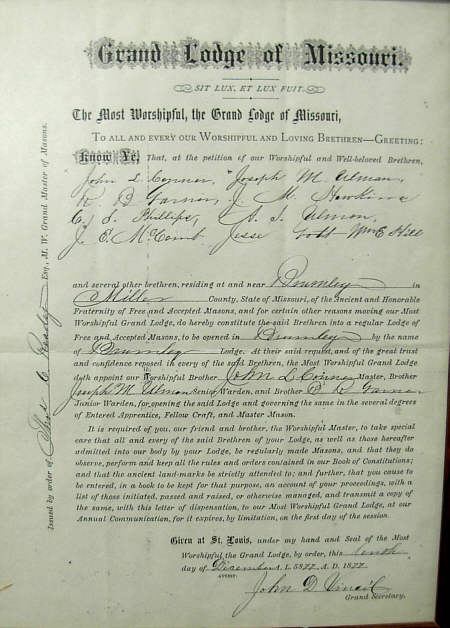 Grand Lodge of Missouri.
SIT LUX, ET LUX FUIT.
The Most Worshipful, the Grand Lodge of Missouri,
TO ALL AND EVERY OUR WORSHIPFUL AND LOVING BRETHREN—GREETING:
Know Ye, That, at the petition of our Worshipful and Well-beloved Brethren,
John L Connor, Joseph M. Ulman,
R. D Garnor, J. M. Hawkins
C. S. Phillips, A. J. Ulmon,
J. E. McComb. Jesse Wm E Hill
and several other brethren, residing at and near Brumley in
Miller County, State of Missouri, of the Ancient and Honorable
Fraternity of Free and Accepted Masons, and for certain other reasons moving our Most
Worshipful Grand Lodge, do hereby constitute the said Brethren into a regular Lodge of
Free and Accepted Masons, to be opened in Brumley by the name
of Brumley Lodge. At their said request, and of the great trust
and confidence reposed in every of the said Brethren, the Most Worshipful Grand Lodge
doth appoint our Worshipful Brother John L Connor Master, Brother
Joseph M. Ulman Senior Warden, and Brother R D Garnor
Junior Warden, for opening the said Lodge and governing the same in the several degrees
of Entered Apprentice, Fellow Craft, and Master Mason.
It is required of you, our friend and brother, the Worshipful Master, to take special
care that all and every of the said Brethren of your Lodge, as well as those hereafter
admitted into our body by your Lodge, be regularly made Masons, and that they do
observe, perform and keep all the rules and orders contained in our Book of Constitutions;
and that the ancient land-marks be strictly attended to; and further, that you cause to
be entered, in a book to be kept for that purpose, an account of your proceedings, with a
list of those initiated, passed and raised, or otherwise managed, and transmit a copy of
the same, with this letter of dispensation, to our Most Worshipful Grand Lodge, at our
Annual Communication, for it expires, by limitation, on the first day of the session.
Given at St. Louis, under my hand and Seal of the Most
Worshipful the Grand Lodge, by order, this tenth
day of December A. L. 5877. A. D. 1877.
ATTEST:
John D. Vincil
Grand Secretary.
Issued by order of Thos C. Ready Esq., M. W. Grand Master of Masons.